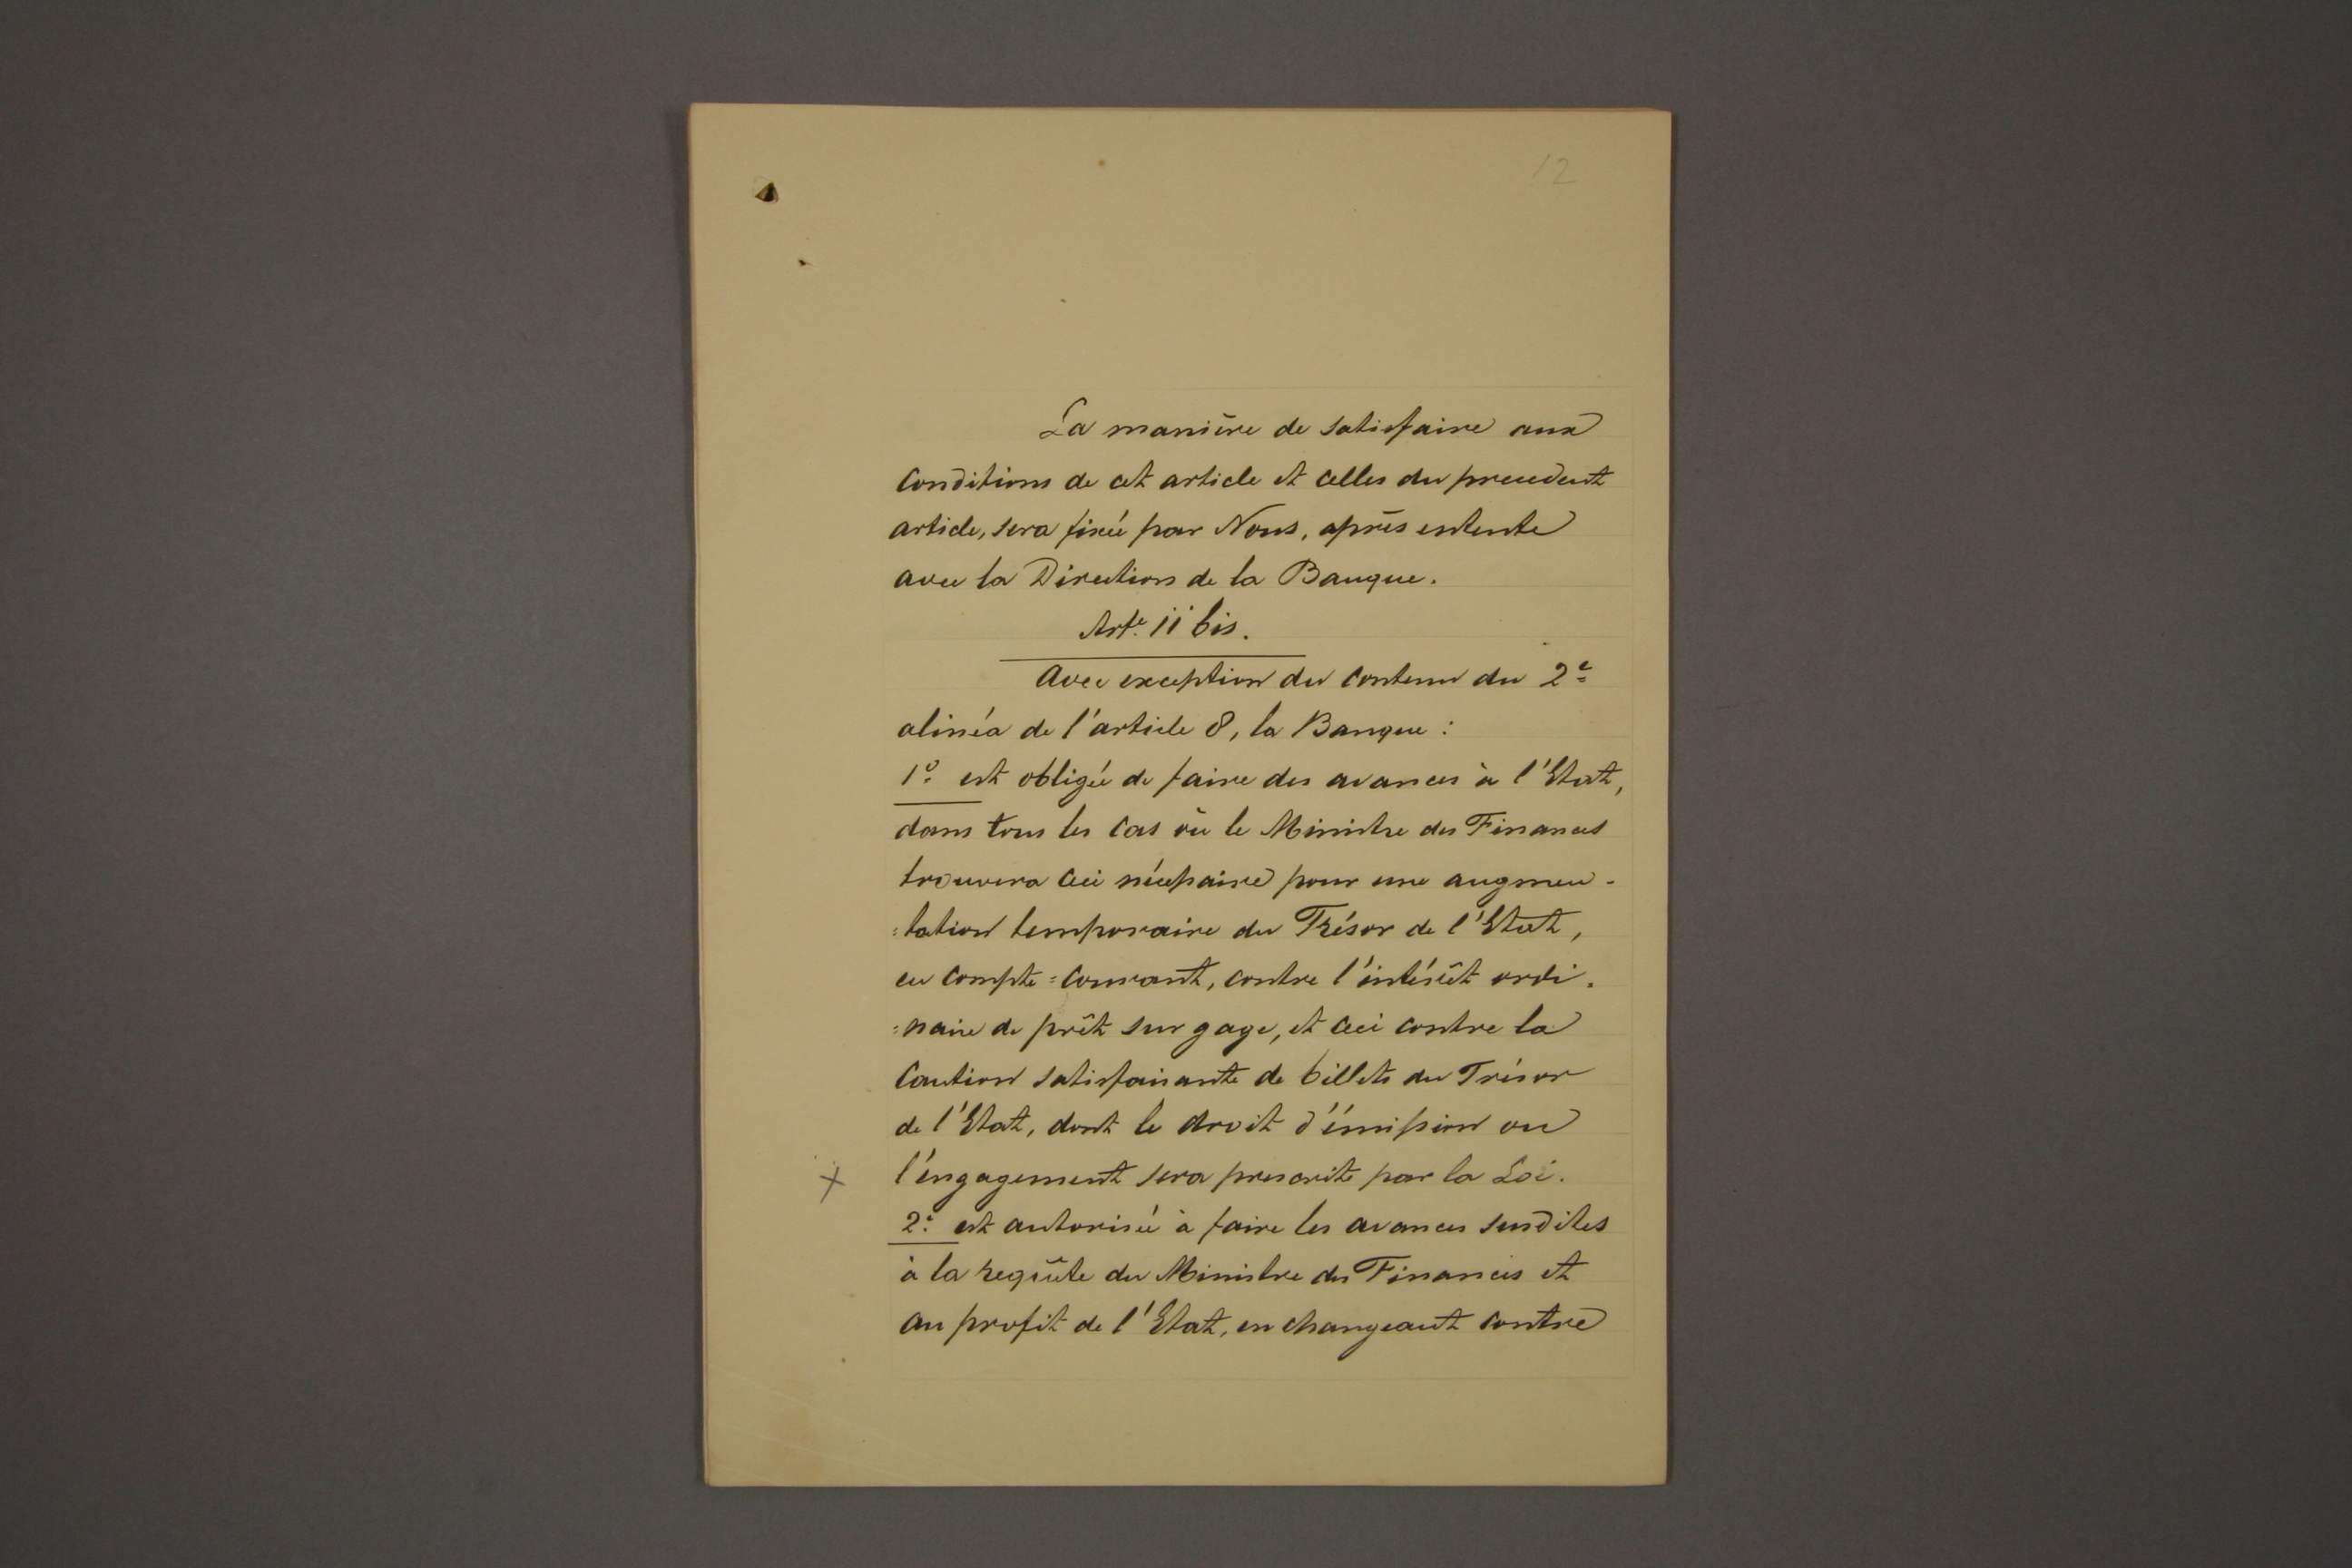 12
La manière de satisfaire aux
conditions de cet article et celles du precedent
article, sera fixée par Nous, après entente
avec la Direction de la Banque.
Arte. 11 bis.
Avec exception du contenu du 2e
alinéa de l'article 8, la Banque :
1o. est obligée de faire des avances à l'Etat,
dans tous les cas où le Ministre des Finances
trouvera ceci nécessaire pour une augmen-
=tation temporaire du Trésor de l'Etat,
en compte=courant, contre l'intérêt ordi-
=naire de prêt sur gage, et ceci contre la
caution satisfaisante de billets du Trésor
de l'Etat, dont le droit d'émission ou
l'engagement sera prescrite par la Loi.
2e. est autorisée à faire les avances susdites
à la requête du Ministre des Finances et
au profit de l'Etat, en changeant contre